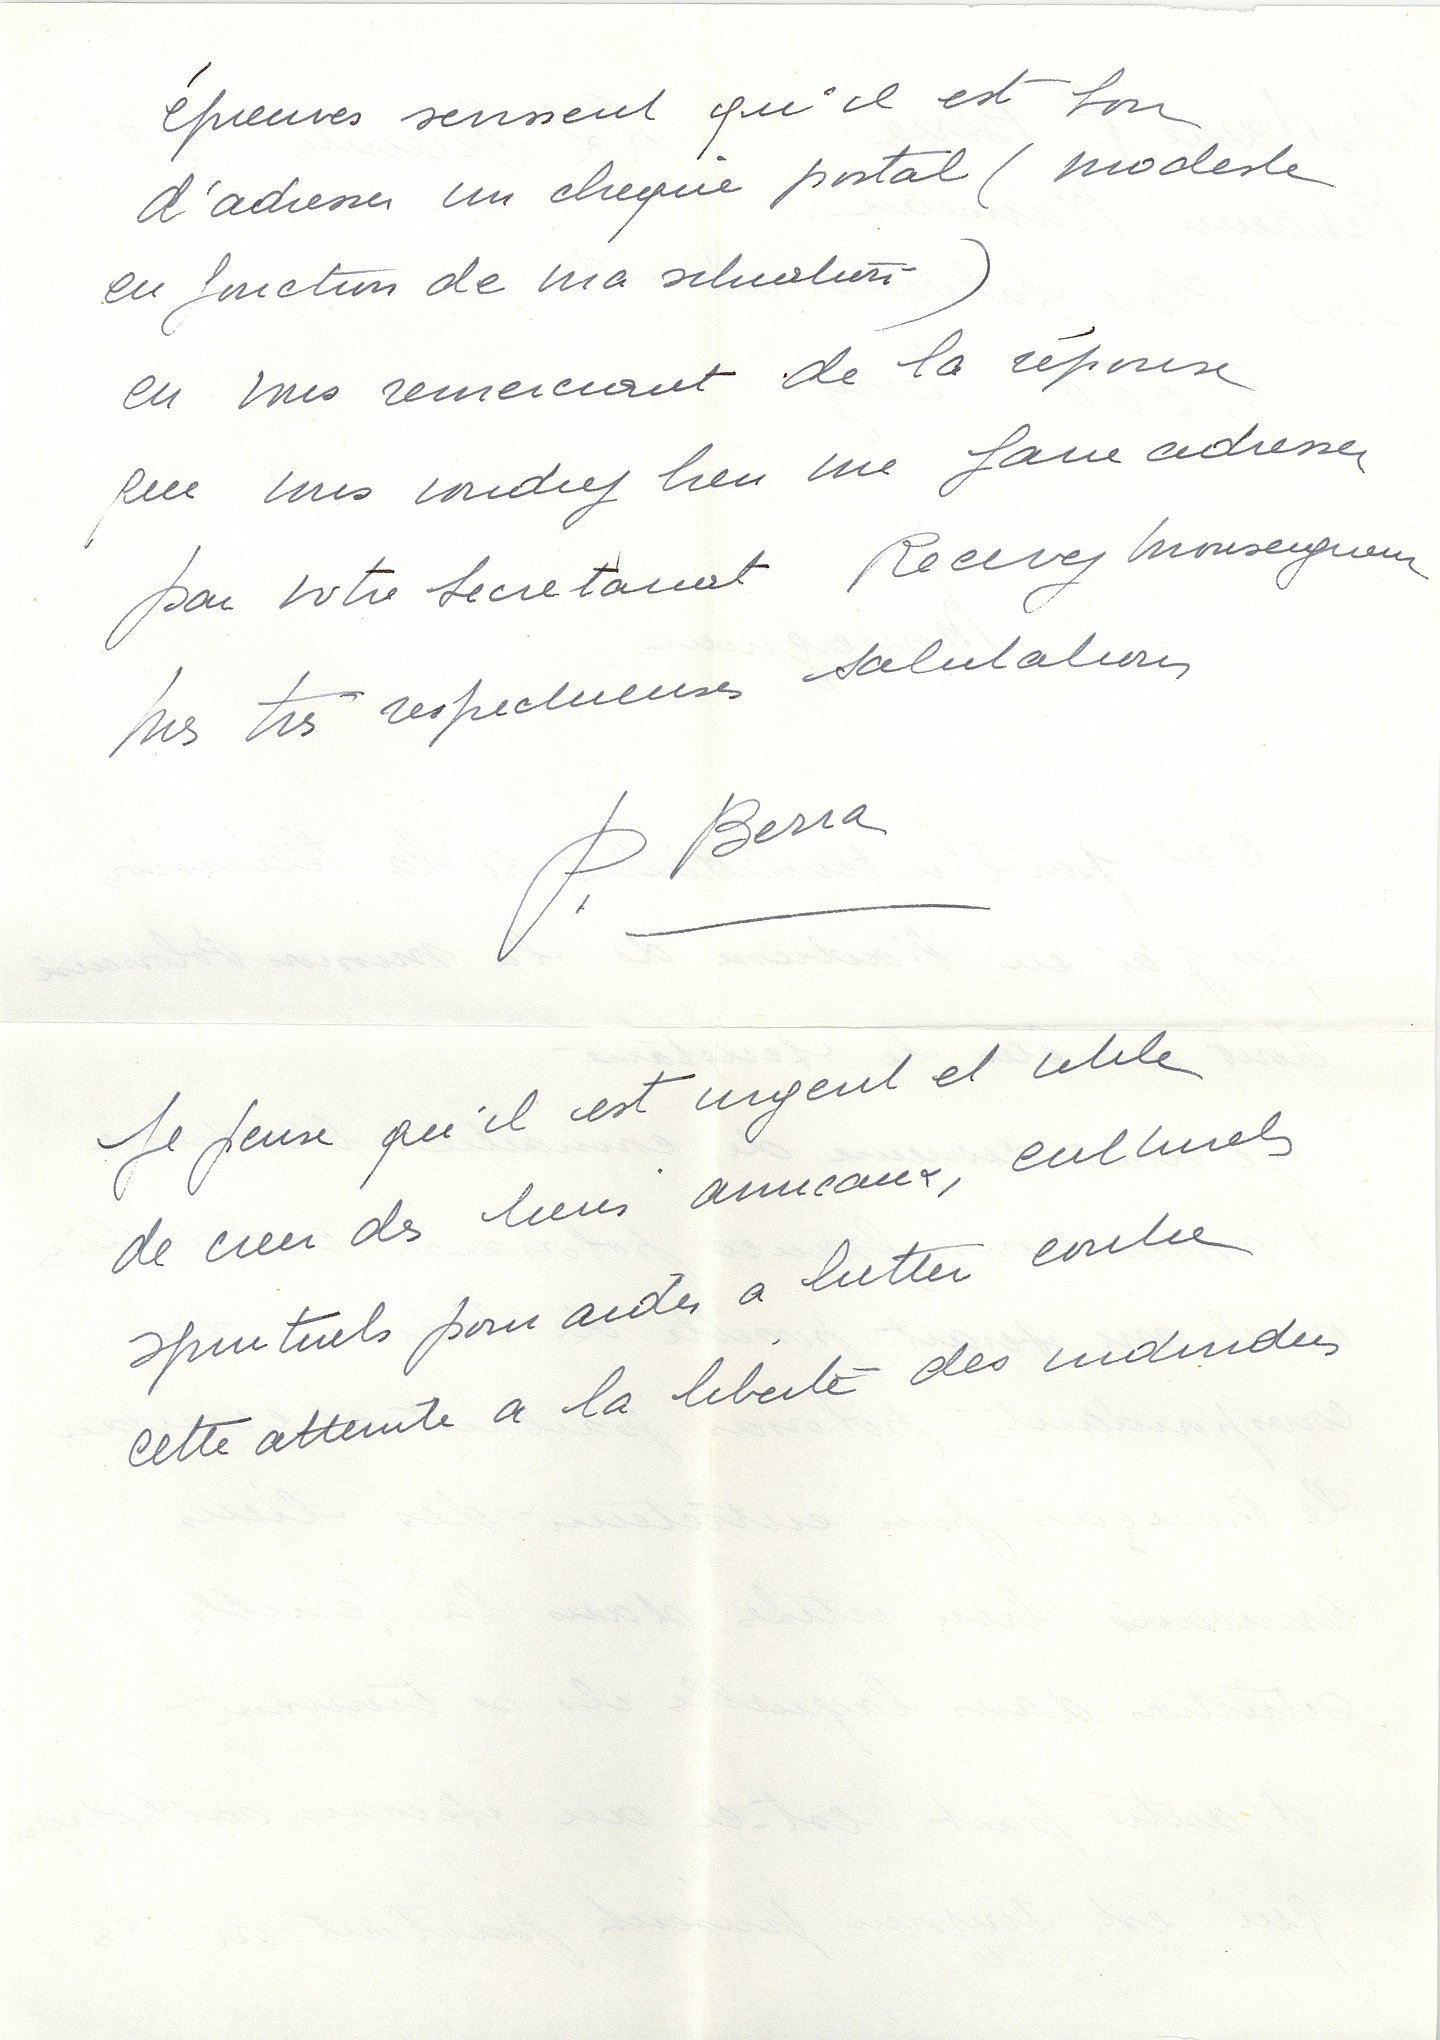 épreuves sensent qu'il est bon
d'adresser un cheque postal ( modeste
en fonction de ma situation )
en vous remerciant de la réponse
que vous voudrez bien me faire adresser
par votre secretariat Recevez Monseigneur
mes très respectueuses salutations
P. Berra
Je pense qu'il est urgent et utile
de creer des liens amicaux, culturels
spirituels pour aider a lutter contre
cette atteinte a la liberté des individus